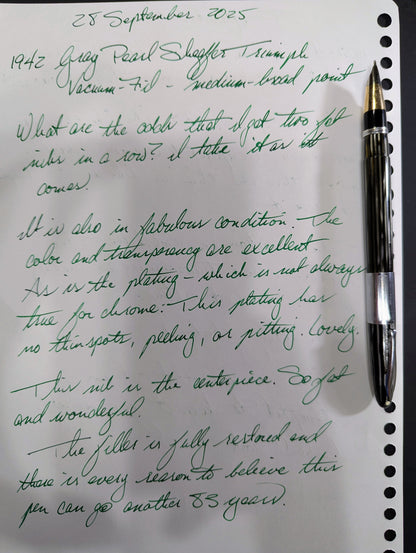 28 September 2025
1942 Gray Pearl Sheaffer Triumph
Vacuum-Fil - medium-broad point
What are the odds that I get two fat
nibs in a row? I take it as it
comes.
It is also in fabulous condition. The
color and transparency are excellent
As is the plating - which is not always
true for chrome. This plating has
no thin spots, peeling, or pitting. Lovely.
This nib is the centerpiece. So fat
and wonderful.
The filler is fully restored and
there is every reason to believe this
pen can go another 83 years.